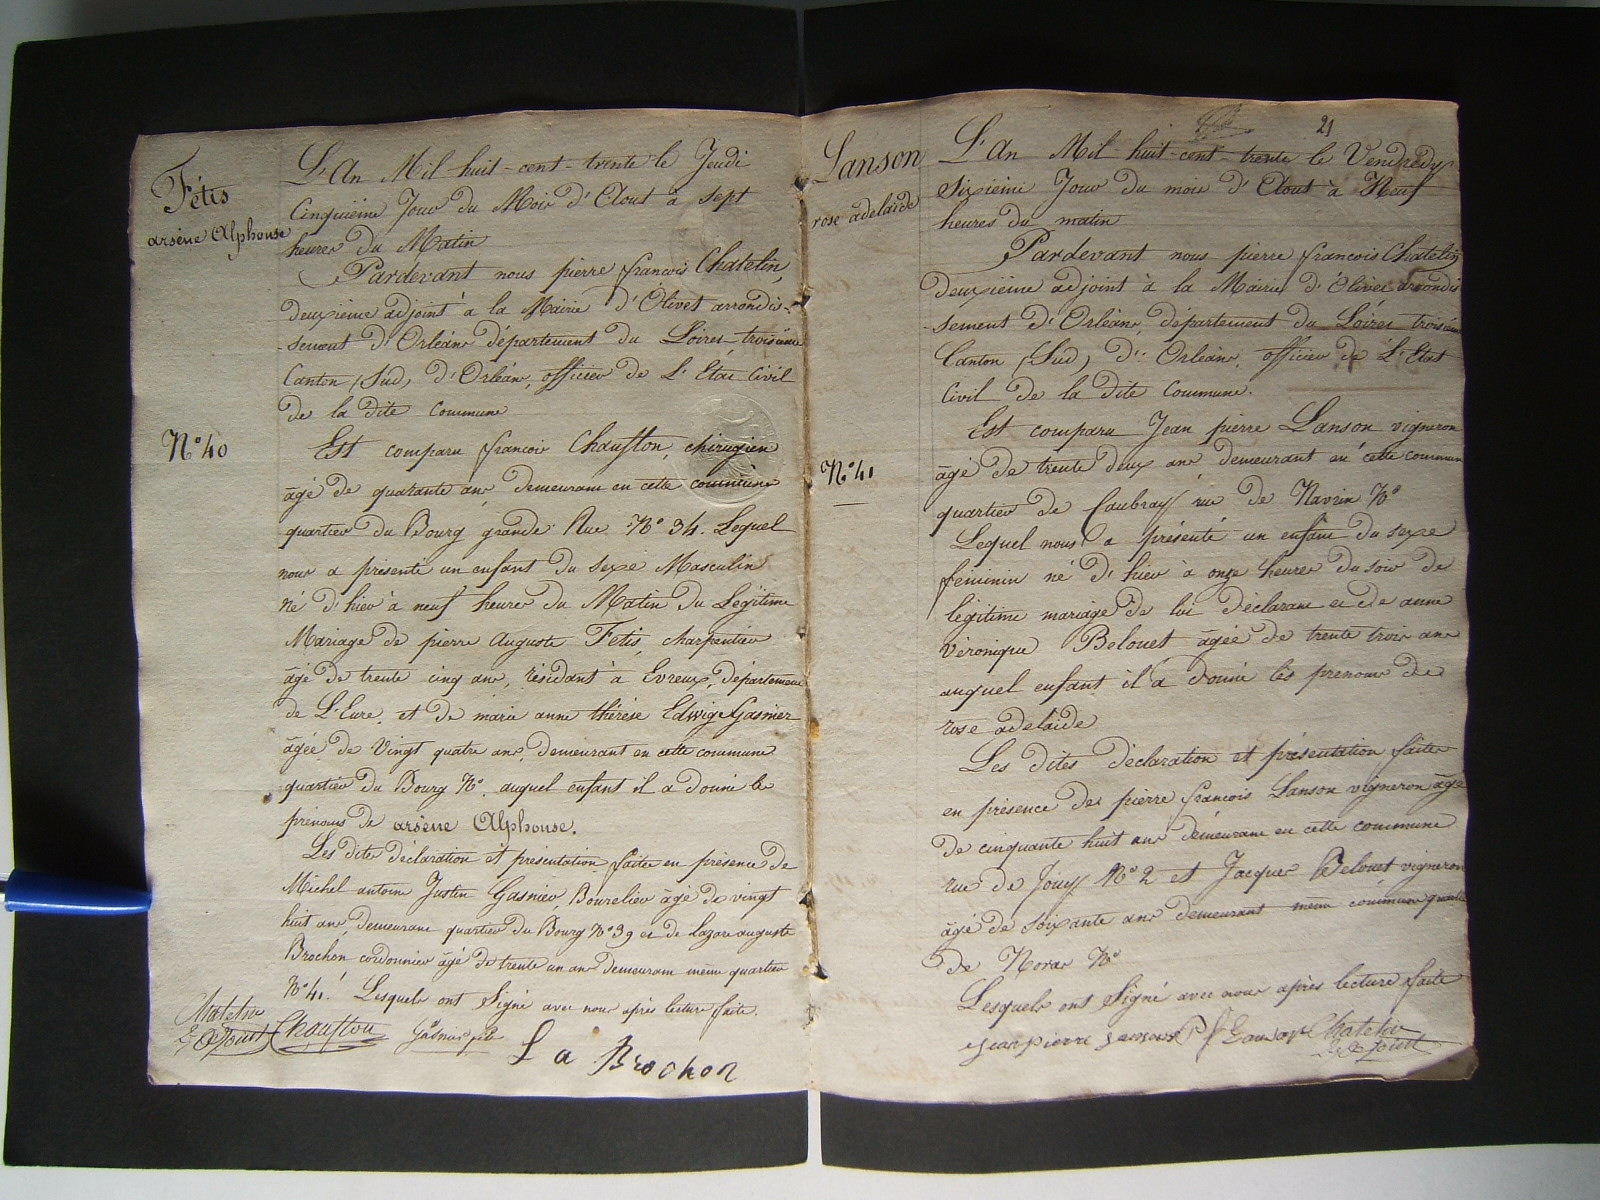 Fétis
arsène Alphonse
N.º 40
L'An Mil huit-cent-trente le Jeudi
Cinquième Jour du Mois d'Aout à sept
heures du Matin
Pardevant nous pierre françois Chatelin,
deuxième adjoint à la Mairie d'Olivet arrondis-
-sement d'Orléans département du Loiret troisième
Canton (Sud) d'Orléans, officier de L'Etat Civil
de la dite commune
Est comparu françois Chaufton, chirugien
âgé de quarante ans demeurant en cette commune
quartier du Bourg grande Rue N.º 34. Lequel
nous a présenté un enfant du sexe Masculin
né d'hier à neuf heures du Matin du Légitime
Mariage de pierre auguste Fetis, charpentier
âgé de trente cinq ans, résidant à Evreux, département
de L'Eure, et de marie anne thérèse Edwige Gasnier
âgée de Vingt quatre ans, demeurant en cette commune
quartier du Bourg N.º auquel enfant il a donné les
prénoms de arsène Alphonse.
Les dites déclaration et présentation faites en présence de
Michel antoine Justin Gasnier, Bourelier âgé de vingt
huit ans, demeurant quartier du Bourg N.º 39 et de Lazare auguste
Brochon cordonnier âgé de trente un ans demeurant même quartier
N.º 41. Lesquels ont Signé avec nous après lecture faite.
Chatelin Chaufton Gasnier
L a Brochon
21
Lanson
rose adelaïde
N.º 41
L'An Mil huit-cent-trente le Vendredy
Sixième Jour du mois d'Aout à Neuf
heures du matin
Pardevant nous pierre françois Chatelin
deuxième adjoint à la Mairie d'Olivet arrondis
-sement d'Orléans, département du Loiret troisième
Canton (Sud) d'Orléans, officier de L'Etat
Civil de la dite commune.
Est comparu Jean pierre Lanson vigneron
âgé de trente deux ans demeurant en cette commune
quartier de Caubray rue de N.º
Lequel nous a présenté un enfant du sexe
féminin né d'hier à onze heures du soir de
légitime mariage de lui déclarant et de anne
Véronique Belouet âgée de trente trois ans
auquel enfant il a donné les prénoms de
rose adelaïde
Les dites déclaration et présentation faites
en présence de pierre françois Lanson vigneron âgé
de cinquante huit ans demeurant en cette commune
rue de Jouy N.º 2 et Jacques Belouet vigneron
âgé de soixante ans demeurant même commune quartier
de N.º
Lesquels ont Signé avec nous après lecture faite
jean pierre Lanson P f Lanson Chatelin